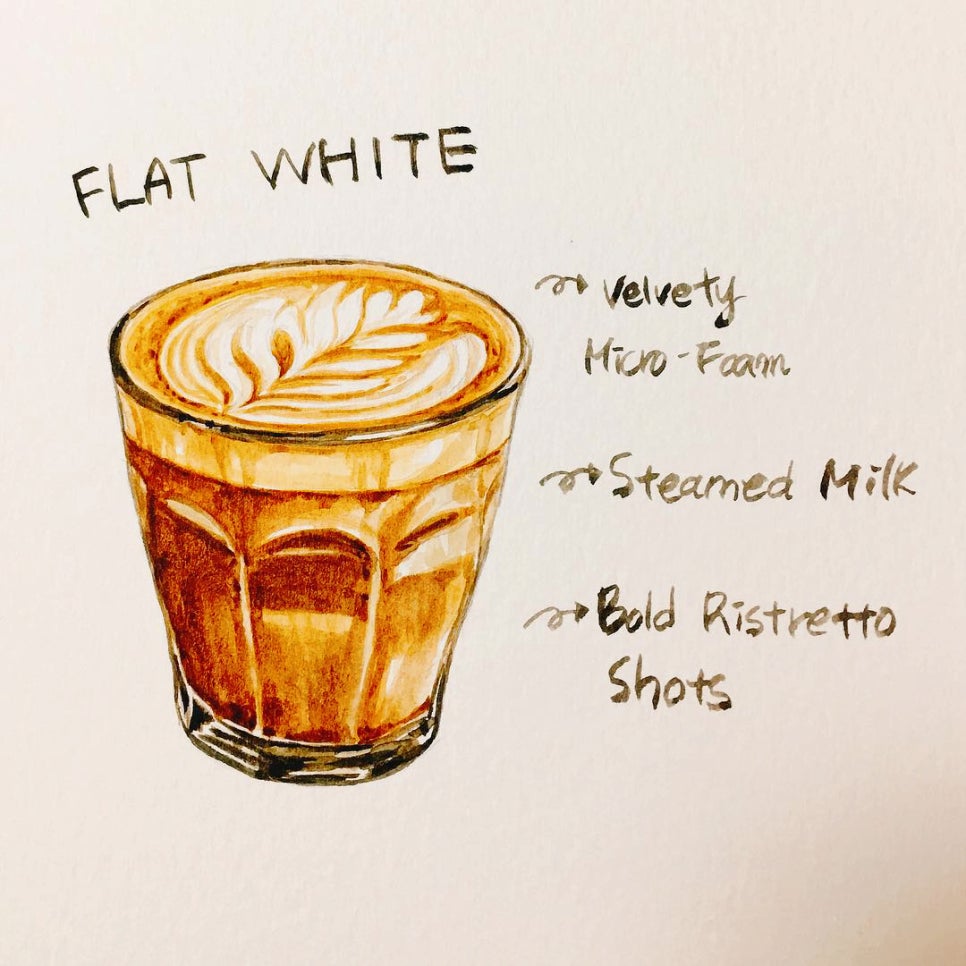 FLAT WHITE
Velvety
Micro-Foam
Steamed Milk
Bold Ristretto
Shots